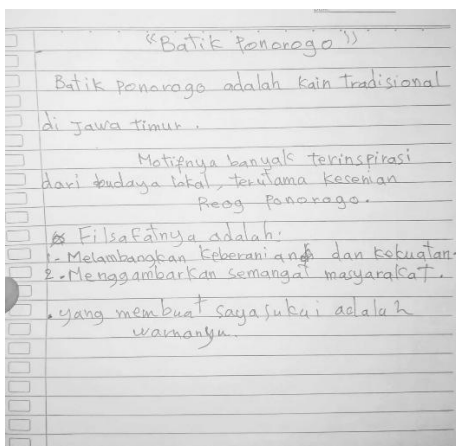 "Batik Ponorogo"
Batik ponorogo adalah kain tradisional
di Jawa timur.
Motifnya banyak terinspirasi
dari budaya lokal, terutama kesenian
Reog Ponorogo.
Filsafatnya adalah:
1- Melambangkan keberanian dan kekuatan.
2. Menggambarkan semangat masyarakat.
. yang membuat saya sukai adalah
warnanya.